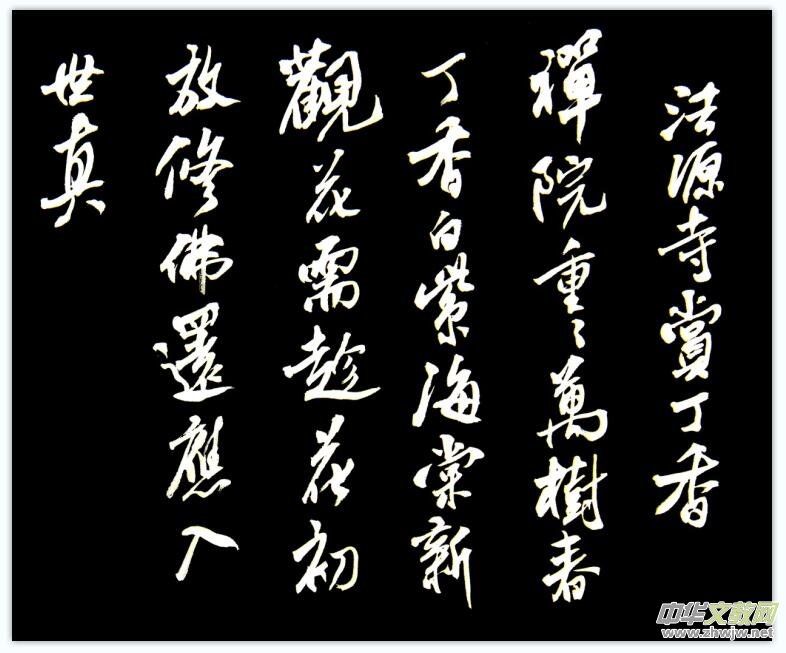 法源寺賞丁香
禪院重〻萬樹春
丁香白紫海棠新
觀花需趁花初
放修佛還應入
世真
中华文教网
www.zhwjw.net